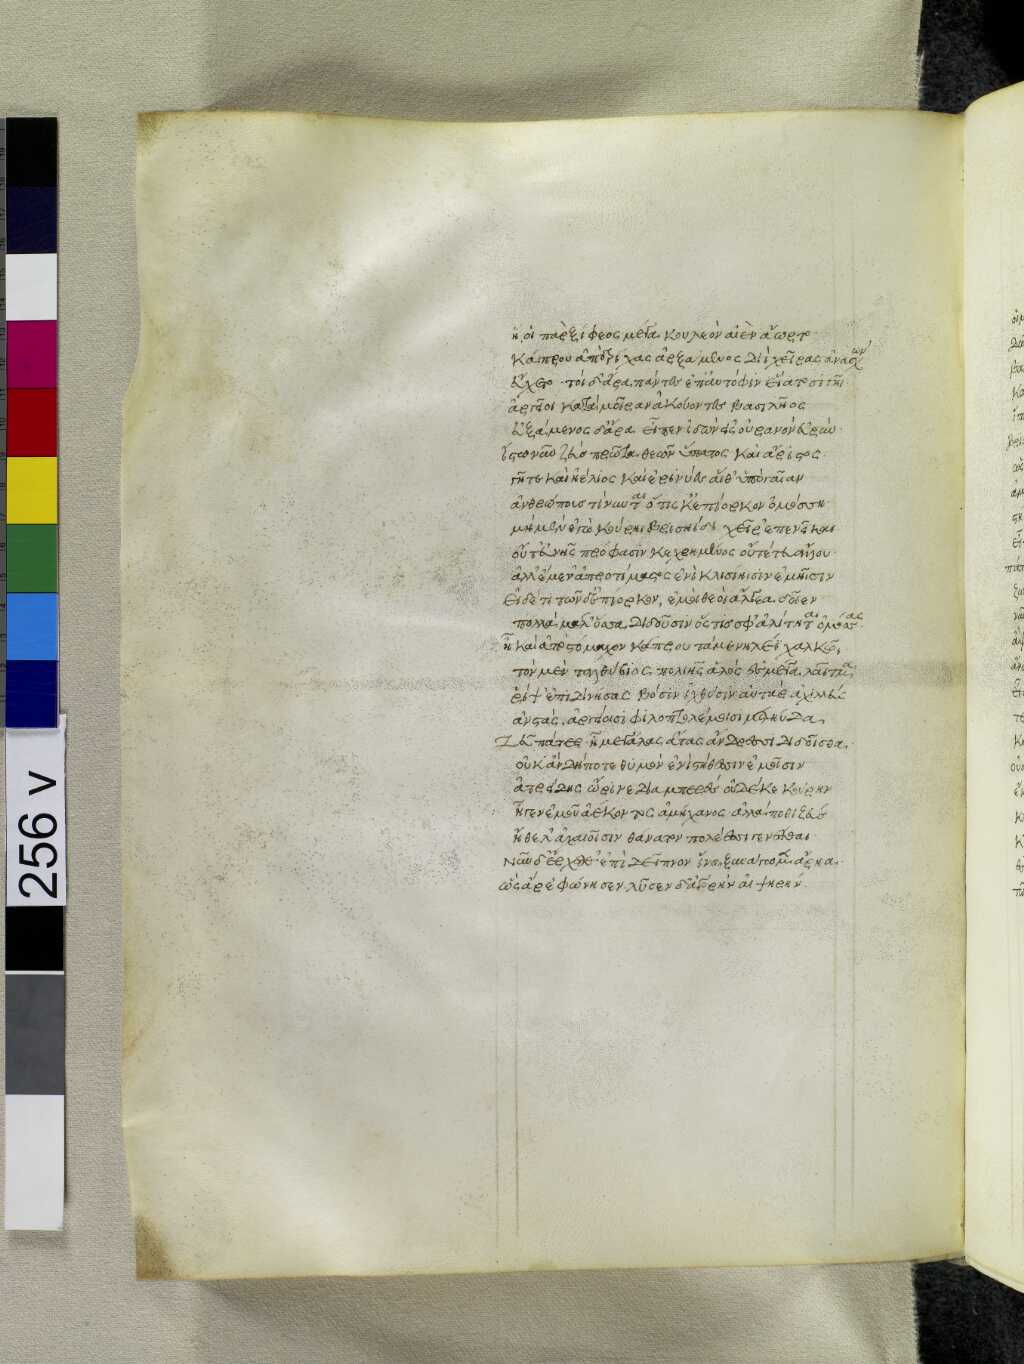 ἥ οἱ πὰρ ξίφεος μέγα κουλεὸν αἰὲν ἄωρτο
κάπρου ἀπὸ τρίχας ἀρξάμενος Διὶ χεῖρας ἀνασχὼν
εὔχετο· τοὶ δ' ἄρα πάντες ἐπ' αὐτόφιν εἵατο σιγῇ
ἀργεῖοι κατὰ μοῖραν ἀκούοντες βασιλῆος
εὐξάμενος δ' ἄρα εἶπεν ἰδὼν εἰς οὐρανὸν εὐρύν
ἴστω νῦν ζεὺς πρῶτα θεῶν ὕπατος καὶ ἄριστος
γῆ τε καὶ ἠέλιος καὶ ἐρινύες αἵθ' ὑπὸ γαῖαν
ἀνθρώπους τίνυνται ὅτις κ' ἐπίορκον ὀμόσση
μὴ μὲν ἐγὼ κούρηι βρισηίδι χεῖρ' ἐπενεῖκαι
οὔτ' εὐνῆς πρόφασιν κεχρημένος οὔτέ τευ ἄλλου
ἀλλ' ἔμεν' ἀπροτίμαστος ἐνὶ κλισίηισιν ἐμῆισιν
εἰ δέ τι τῶνδ' ἐπίορκον, ἐμοὶ θεοὶ ἄλγεα δοῖεν
πολλὰ μαλ' ὅσσα διδοῦσιν ὅς τις σφ' ἀλίτηται ὀμόσσας
ἦ καὶ ἀπὸ στόμαχον κάπρου τάμε νηλέϊ χαλκῶ,
τὸν μὲν ταλθύβιος πολιῆς ἁλὸς ἐς μέγα λαῖτμα
ῥίψ' ἐπιδινήσας βόσιν ἰχθύσιν αὐτὰρ ἀχιλλεὺς
ἀνστὰς ἀργείοισι φιλοπτολέμοισι μετηύδα
Ζεῦ πάτερ ἦ μεγάλας ἄτας ἄνδρεσσι διδοῖσθα
οὐκ ἂν δήποτε θυμὸν ἐνὶ στήθεσσιν ἐμοῖσιν
ἀτρείδης ὤρινε διαμπερὲς οὐδέ κε κούρην
ἦγεν ἐμοῦ ἀέκοντος ἀμήχανος ἀλλά ποθι ζεὺς
ἤθελ' ἀχαιοῖσιν θάνατον πολέεσσι γενέσθαι
νῦν δ' ἔρχεσθ' ἐπὶ δεῖπνον ἵνα ξυνάγωμεν ἄρηα
ὣς ἄρ' ἐφώνησεν λῦσεν δ' ἀγορὴν αἰψηρήν
256 v